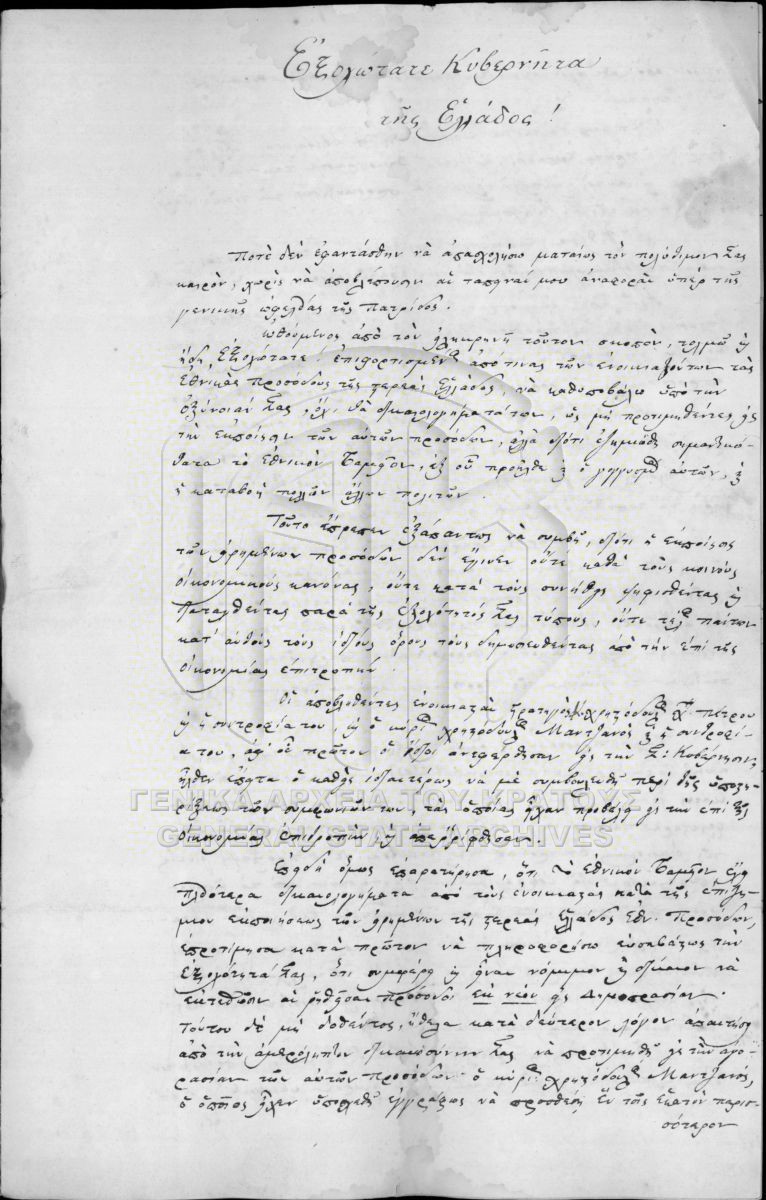 Ἐξοχώτατε Κυβερνῆτα
τῆς Ἑλλάδος!
Ποτὲ δὲν ἐφαντάσθην νὰ ἀπασχολήσω ματαίως τὸν πολύτιμον Σας
καιρὸν, χωρὶς νὰ ἀποβλέπουσιν αἱ ταπειναί μου ἀναφοραὶ ὑπὲρ τῆς
γενικῆς ὠφελείας τῆς Πατρίδος.
Ὠθούμενος ἀπὸ τὸν εἰλικρινῆ τοῦτον σκοπὸν, τολμῶ καὶ
ἤδη, Ἐξοχώτατε! ἐπιφορτισμένος ἀπό τινας τῶν ἐνοικιαζόντων τὰς
Ἐθνικὰς προσόδους τῆς ξερεᾶς Ἑλλάδος, νὰ καθυποβάλω ὑπὸ τὴν
ὀξύνοιάν Σας, ὄχι τὰ δικαιολογήματά των, ὡς μὴ προτιμηθέντες εἰς
τὴν ἐκποίησιν τῶν αὐτῶν προσόδων, ἀλλὰ διότι ἐζημιώθη σημαντικώ-
τατα τὸ Ἐθνικὸν Ταμεῖον, ἐξ οὗ προῆλθε καὶ ὁ γογγυσμὸς αὐτῶν, καὶ
ἡ καταβοὴ πολλῶν ἄλλων πολιτῶν.
Τοῦτο ἔπρεπεν ἐξάπαντος νὰ συμβῇ, διότι ἡ ἐκποίησις
τῶν εἰρημένων προσόδων δὲν ἔγινεν οὔτε κατὰ τοὺς κοινοὺς
οἰκονομικοὺς κανόνας, οὔτε κατὰ τοὺς συνήθεις ψηφισθέντας καὶ
διαταχθέντας παρὰ τῆς ἐξοχότητός Σας τύπους, οὔτε τέλος πάντων
κατ' αὐτοὺς τοὺς ἰδίους ὅρους τοὺς δημοσιευθέντας ἀπὸ τὴν ἐπὶ τῆς
οἰκονομίας ἐπιτροπήν.
Οἱ ἀποβληθέντες ἐνοικιασταὶ στρατηγὸς Χριστόδουλος Χ. Πέτρου
καὶ ἡ συντροφία του, καὶ ὁ κύριος Χριστόδουλος Μαντζάνος καὶ ἡ συντροφί-
α του, ἀφ' οὗ πρῶτον οἱ ἴδιοι ἀνεφέρθησαν εἰς τὴν Σ: Κυβέρνησιν,
ἦλθεν ἔπειτα ὁ καθεὶς ἰδιαιτέρως νὰ μὲ συμβουλευθῇ περὶ τῆς
τῶν συμφωνιῶν των, τὰς ὁποίας εἶχαν προβάλει εἰς τὴν ἐπὶ τῆς
οἰκονομίας ἐπιτροπὴν καὶ ἀπερρίφθησαν.
Ἐπειδὴ ὅμως ἐπαρατήρησα, ὅτι τὸ Ἐθνικὸν Ταμεῖον ἔχει
πλειότερα δικαιολογήματα ἀπὸ τοὺς ἐνοικιαστὰς κατὰ τῆς ἐπιζη-
μίου ἐκποιήσεως τῶν εἰρημένων τῆς ξερεᾶς Ἑλλάδος Ἐθν. Προσόδων,
ἐπροτίμησα κατὰ πρῶτον νὰ πληροφορήσω εὐσεβάστως τὴν
Ἐξοχότητά Σας, ὅτι συμφέρει καὶ εἶναι νόμιμον καὶ δίκαιον νὰ
ἐκτεθῶσιν αἱ ῥηθεῖσαι πρόσοδοι ἐκ νέου εἰς Δημοπρασίαν.
Τούτου δὲ μὴ δοθέντος, ἤθελα κατὰ δεύτερον λόγον ἀπαιτήσει
ἀπὸ τὴν ἀμερόληπτον δικαιοσύνην Σας νὰ προτιμηθῇ εἰς τὴν ἀγο-
ρασίαν τῶν αὐτῶν προσόδων ὁ κύριος Χριστόδουλος Μαντζάνος,
ὁ ὁποῖος εἶχεν ὑποσχεθῇ ἐγγράφως νὰ προσθέσῃ ἓν τοῖς ἑκατὸν περισ-
σότερον
ΓΕΝΙΚΑ ΑΡΧΕΙΑ ΤΟΥ ΚΡΑΤΟΥΣ
GENERAL STATE ARCHIVES